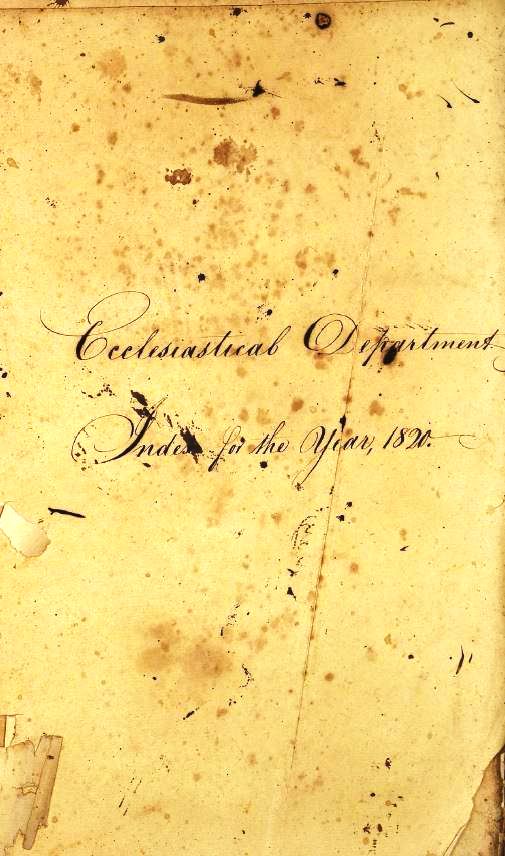 Ecclesiastical Department
Index for the Year, 1820.